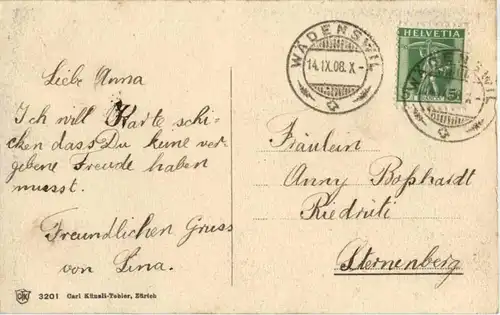 WÄDENSWIL
14.IX.08.X-
HELVETIA
5
Liebe Anna
Ich will Karte schi-
cken dass Du keine ver-
gebene Freude haben
musst.
Freundlichen Gruss
von Lina.
Fräulein
Anny Boßhardt
Riedrüti
Sternenberg
3201 Carl Künzli-Tobler, Zürich